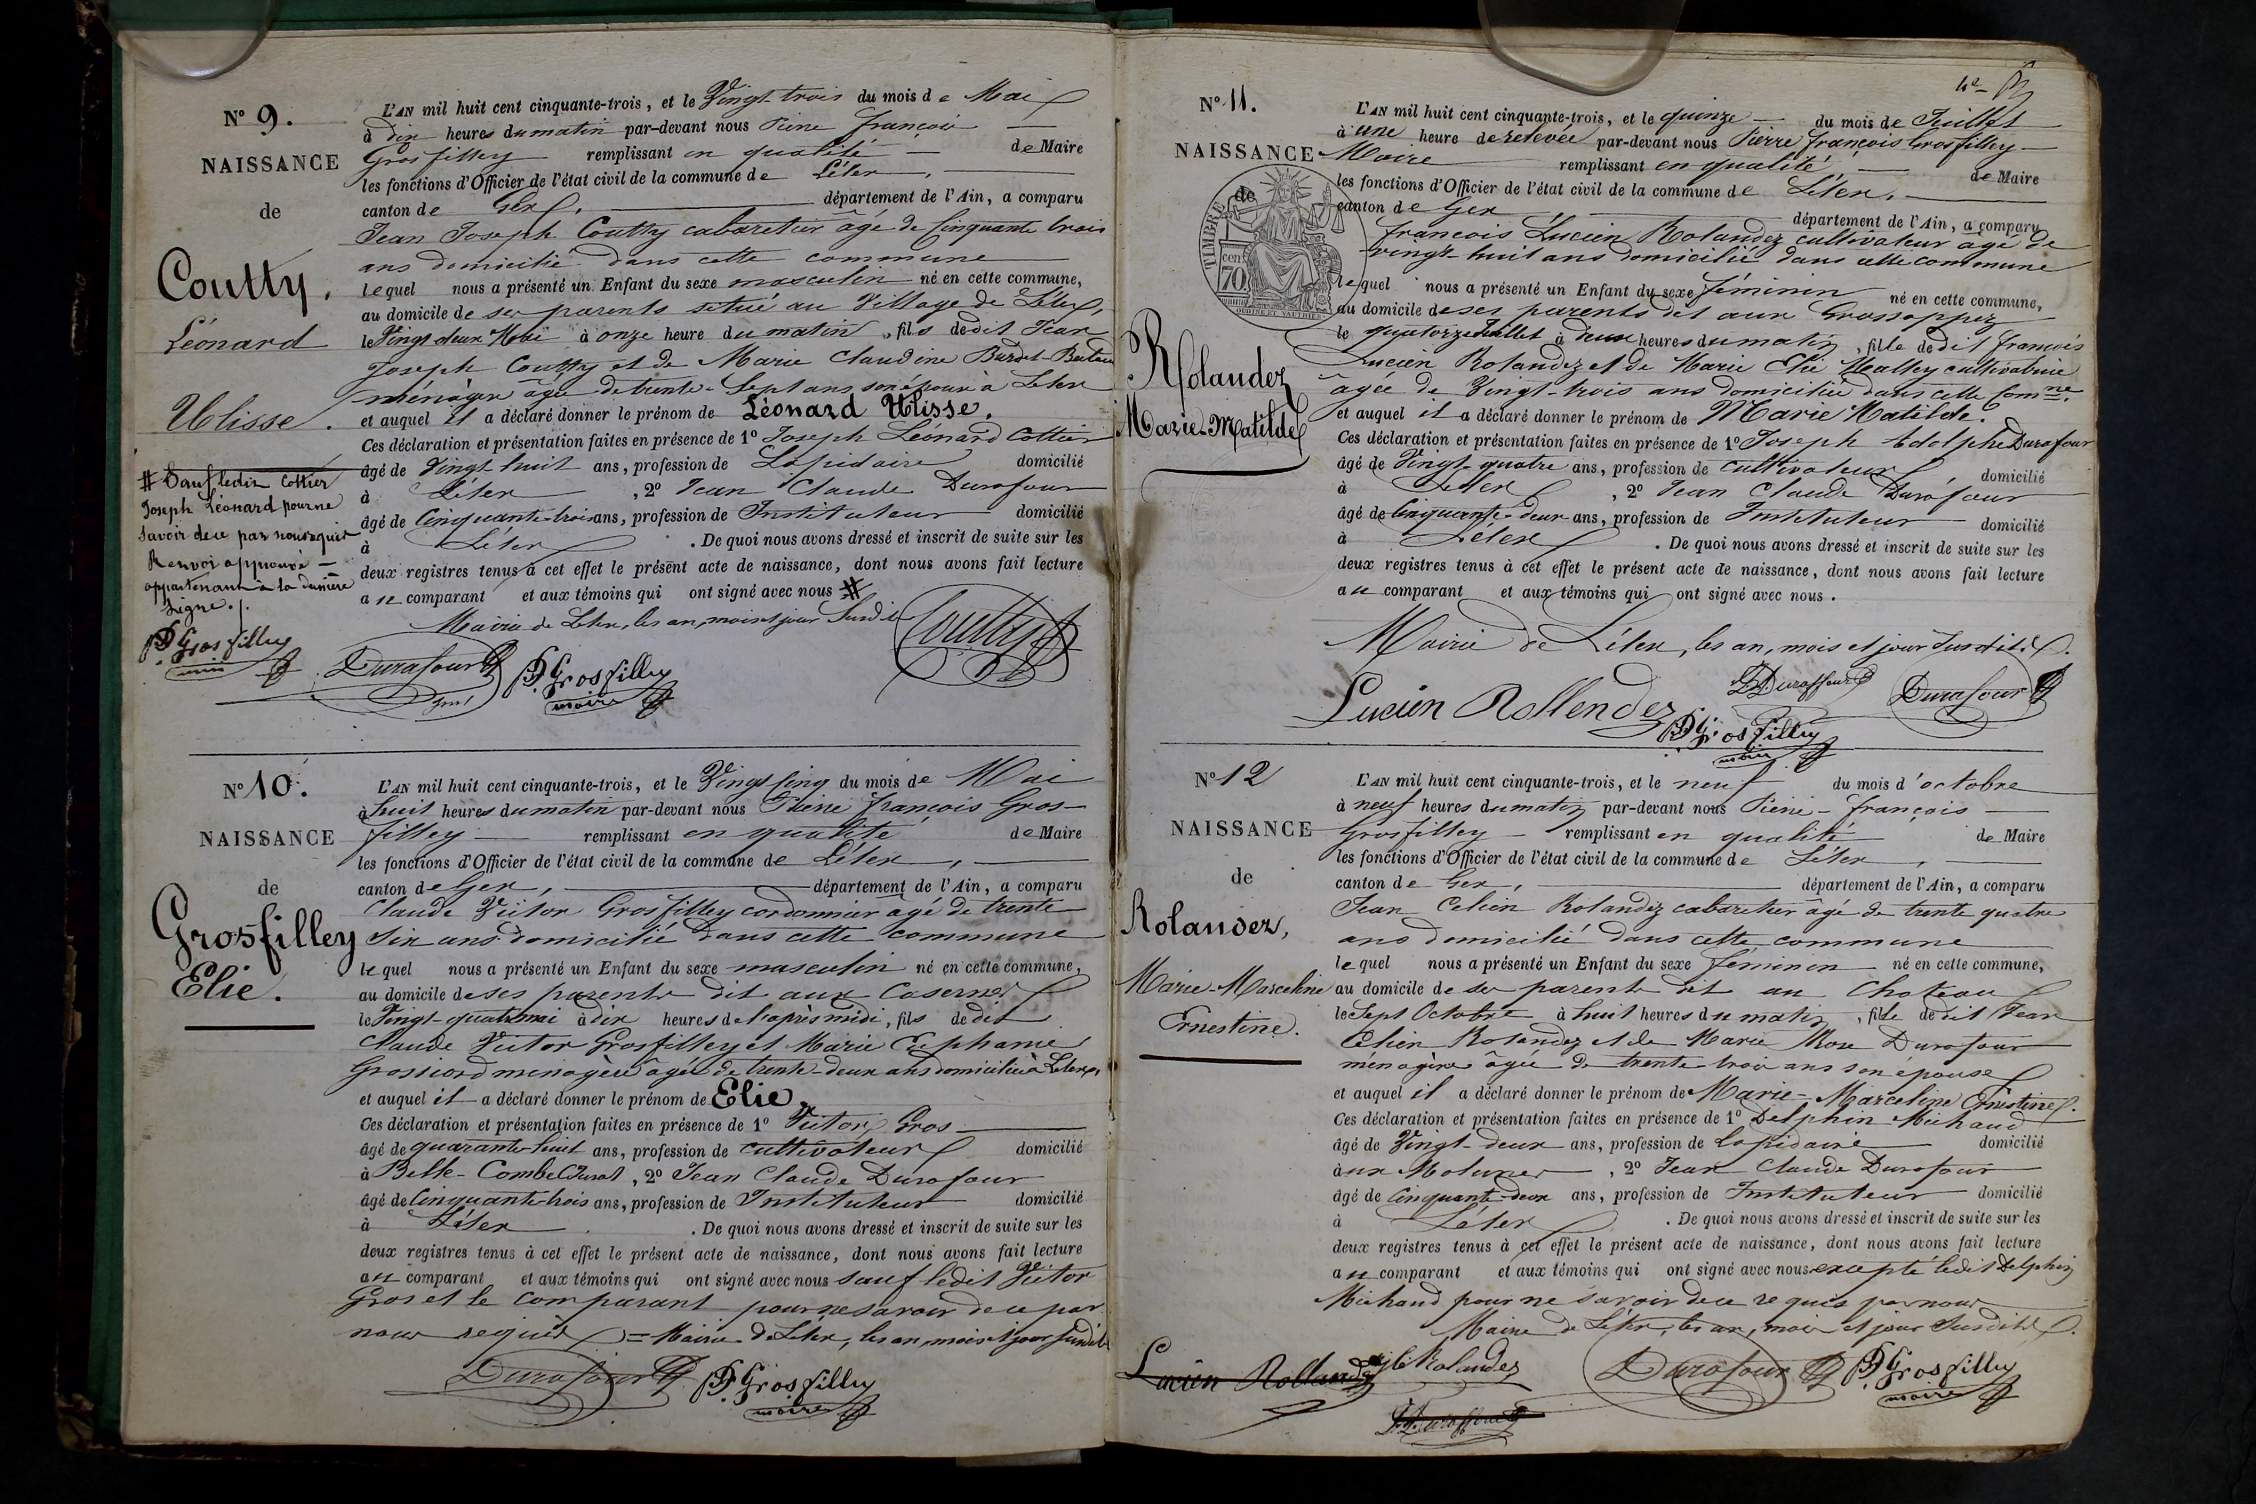 N° 9.
NAISSANCE
de
Coutty,
Léonard
Ulisse.
# Sauf ledit Cottier
Joseph Léonard pour ne
savoir de ce par nous requis
Renvoi approuvé —
appartenant à la dernière
ligne ./.
PF Grosfilley
maire
L'AN mil huit cent cinquante-trois, et le Vingt trois du mois de Mai
à dix heures du matin par-devant nous Pierre françois
Grosfilley remplissant en qualité de Maire
les fonctions d'Officier de l'état civil de la commune de Lélex,
canton de Gex, département de l'Ain, a comparu
Jean Joseph Coutty cabaretier âgé de Cinquante trois
ans domicilié dans cette commune
lequel nous a présenté un Enfant du sexe masculin né en cette commune,
au domicile de ses parents situé au Village de Lélex,
le Vingt deux Mai à onze heure du matin, fils dedit Jean
Joseph Coutty et de Marie Claudine
ménagère âgée de trente-Sept ans son épouse à Lelex
et auquel il a déclaré donner le prénom de Léonard Ulisse.
Ces déclaration et présentation faites en présence de 1° Joseph Léonard Cottier
âgé de Vingt huit ans, profession de Lapidaire domicilié
à Lélex, 2° Jean Claude Durafour
âgé de Cinquante-trois ans, profession de Instituteur domicilié
à Lélex. De quoi nous avons dressé et inscrit de suite sur les
deux registres tenus à cet effet le présent acte de naissance, dont nous avons fait lecture
au comparant et aux témoins qui ont signé avec nous #
Mairie de Lélex, les an, mois et jour Susdits
Coutty
Durafour
PF Grosfilley
maire
N° 10.
NAISSANCE
de
Grosfilley
Elie.
L'AN mil huit cent cinquante-trois, et le Vingt Cinq du mois de Mai
à huit heures du matin par-devant nous Pierre françois Gros-
filley remplissant en qualité de Maire
les fonctions d'Officier de l'état civil de la commune de Lélex,
canton de Gex, département de l'Ain, a comparu
Claude Victor Grosfilley cordonnier âgé de trente
Six ans domicilié dans cette commune
lequel nous a présenté un Enfant du sexe masculin né en cette commune,
au domicile de ses parents dit aux Casernes
le Vingt-quatre mai à dix heures de l'après midi, fils dedit
Claude Victor Grosfilley et Marie
Grossiord ménagère âgée de trente-deux ans domiciliée à Lelex,
et auquel il a déclaré donner le prénom de Elie,
Ces déclaration et présentation faites en présence de 1° Victor Gros
âgé de quarante-huit ans, profession de cultivateur domicilié
à Belle-Combe (Jura), 2° Jean Claude Durafour
âgé de Cinquante-trois ans, profession de Instituteur domicilié
à Lélex. De quoi nous avons dressé et inscrit de suite sur les
deux registres tenus à cet effet le présent acte de naissance, dont nous avons fait lecture
au comparant et aux témoins qui ont signé avec nous sauf ledit Victor
Gros et le comparant pour ne savoir de ce par
nous requis = Mairie de Lélex, les an, mois et jour susdits
Durafour
PF Grosfilley
maire
N° 11.
NAISSANCE
de
TIMBRE
70 cen
OUDINÉ ET VAUTHIER
Rolandez
Marie-Matilde
L'AN mil huit cent cinquante-trois, et le quinze du mois de Juillet
à une heure de relevée par-devant nous Pierre françois Grosfilley
Maire remplissant en qualité de Maire
les fonctions d'Officier de l'état civil de la commune de Lélex,
canton de Gex département de l'Ain, a comparu
francois Lucien Rolandez cultivateur âgé de
vingt-huit ans domicilié dans cette commune
lequel nous a présenté un Enfant du sexe féminin né en cette commune,
au domicile de ses parents dit aux
le quatorze Juillet à deux heures du matin, fille dedit françois
Lucien Rolandez et de Marie cultivatrice
âgée de Vingt-trois ans domiciliée dans cette Comne.
et auquel il a déclaré donner le prénom de Marie Matilde.
Ces déclaration et présentation faites en présence de 1° Joseph Adolphe Durafour
âgé de Vingt-quatre ans, profession de cultivateur, domicilié
à Lelex, 2° Jean Claude Durafour
âgé de Cinquante-deux ans, profession de Instituteur domicilié
à Lélex. De quoi nous avons dressé et inscrit de suite sur les
deux registres tenus à cet effet le présent acte de naissance, dont nous avons fait lecture
au comparant et aux témoins qui ont signé avec nous.
Mairie de Lélex, les an, mois et jour Susdits.
Lucien Rollendez
Duraffour
Durafour
PF Grosfilley
maire
N° 12
NAISSANCE
de
Rolandez,
Marie-Marceline
Ernestine.
L'AN mil huit cent cinquante-trois, et le neuf du mois d'octobre
à neuf heures du matin par-devant nous Pierre-françois
Grosfilley remplissant en qualité de Maire
les fonctions d'Officier de l'état civil de la commune de Lélex,
canton de Gex, département de l'Ain, a comparu
Jean Célien Rolandez cabaretier âgé de trente quatre
ans domicilié dans cette commune
lequel nous a présenté un Enfant du sexe féminin né en cette commune,
au domicile de ses parents dit au Chateau
le Sept Octobre à huit heures du matin, fille dedit Jean
Célien Rolandez et de Marie Rose Durafour
ménagère âgée de trente trois ans son épouse
et auquel il a déclaré donner le prénom de Marie-Marceline Ernestine.
Ces déclaration et présentation faites en présence de 1° Delphin Michaud
âgé de Vingt-deux ans, profession de lapidaire domicilié
aux Molunes, 2° Jean Claude Durafour
âgé de Cinquante-deux ans, profession de Instituteur domicilié
à Lélex. De quoi nous avons dressé et inscrit de suite sur les
deux registres tenus à cet effet le présent acte de naissance, dont nous avons fait lecture
au comparant et aux témoins qui ont signé avec nous excepté ledit Delphin
Michaud pour ne savoir de ce requis par nous
Mairie de Lélex, les an, mois et jour Susdits.
Lucien Rollandez
Rolandez
Durafour
PF Grosfilley
maire
Duraffour